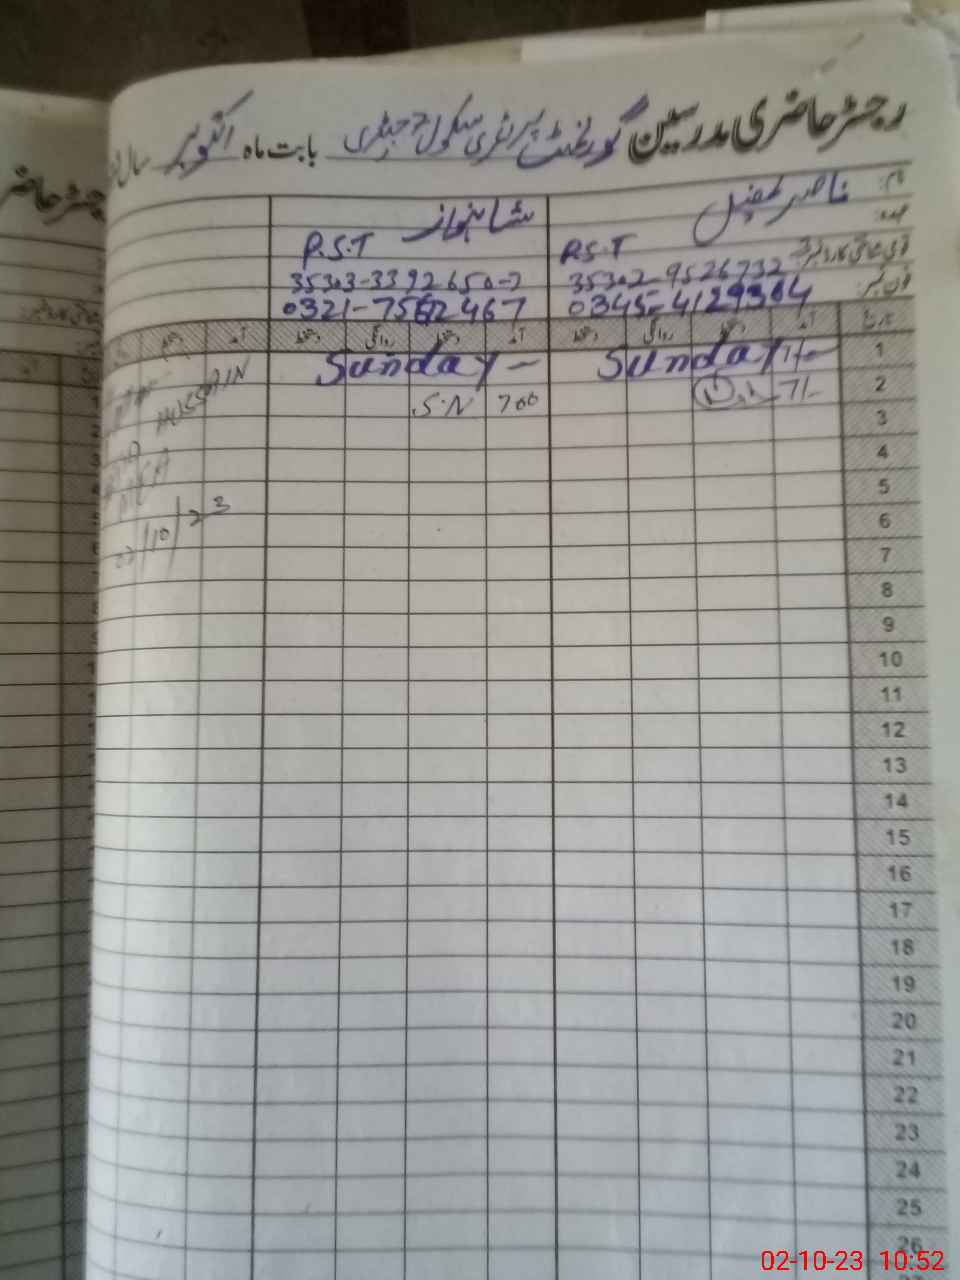 رجسٹر حاضری مدرسین گورنمنٹ پرائمری سکول بابت ماہ اکتوبر سال
نام:
ناصر طفیل
شاہنواز
عہدہ:
P.S.T
P.S.T
قومی شناختی کارڈ نمبر:
35302-9526732-3
35303-3392650-7
فون نمبر:
0345-4129304
0321-7562467
تاریخ آمد دستخط روانگی دستخط آمد دستخط روانگی دستخط آمد دستخط
1 Sunday Sunday -
2 7/- 700 S.N
HUSSAIN
MEA
02/10/23
3
4
5
6
7
8
9
10
11
12
13
14
15
16
17
18
19
20
21
22
23
24
25
26
رجسٹر حاضر
02-10-23 10:52